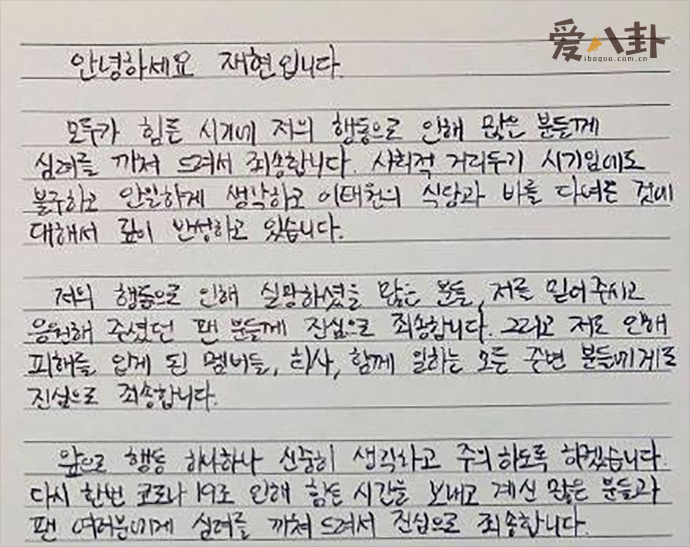 爱八卦
ibagua.com.cn
안녕하세요 재현입니다.
모두가 힘든 시기에 저의 행동으로 인해 많은 분들께
심려를 끼쳐 드려서 죄송합니다. 사회적 거리두기 시기임에도
불구하고 안일하게 생각하고 이태원의 식당과 바를 다녀온 것에
대해서 깊이 반성하고 있습니다.
저의 행동으로 인해 실망하셨을 많은 분들, 저를 믿어주시고
응원해 주셨던 팬 분들께 진심으로 죄송합니다. 그리고 저로 인해
피해를 입게 된 멤버들, 회사, 함께 일하는 모든 주변 분들에게도
진심으로 죄송합니다.
앞으로 행동 하나하나 신중히 생각하고 주의 하도록 하겠습니다.
다시 한번 코로나 19로 인해 힘든 시간을 보내고 계신 많은 분들과
팬 여러분에게 심려를 끼쳐 드려서 진심으로 죄송합니다.